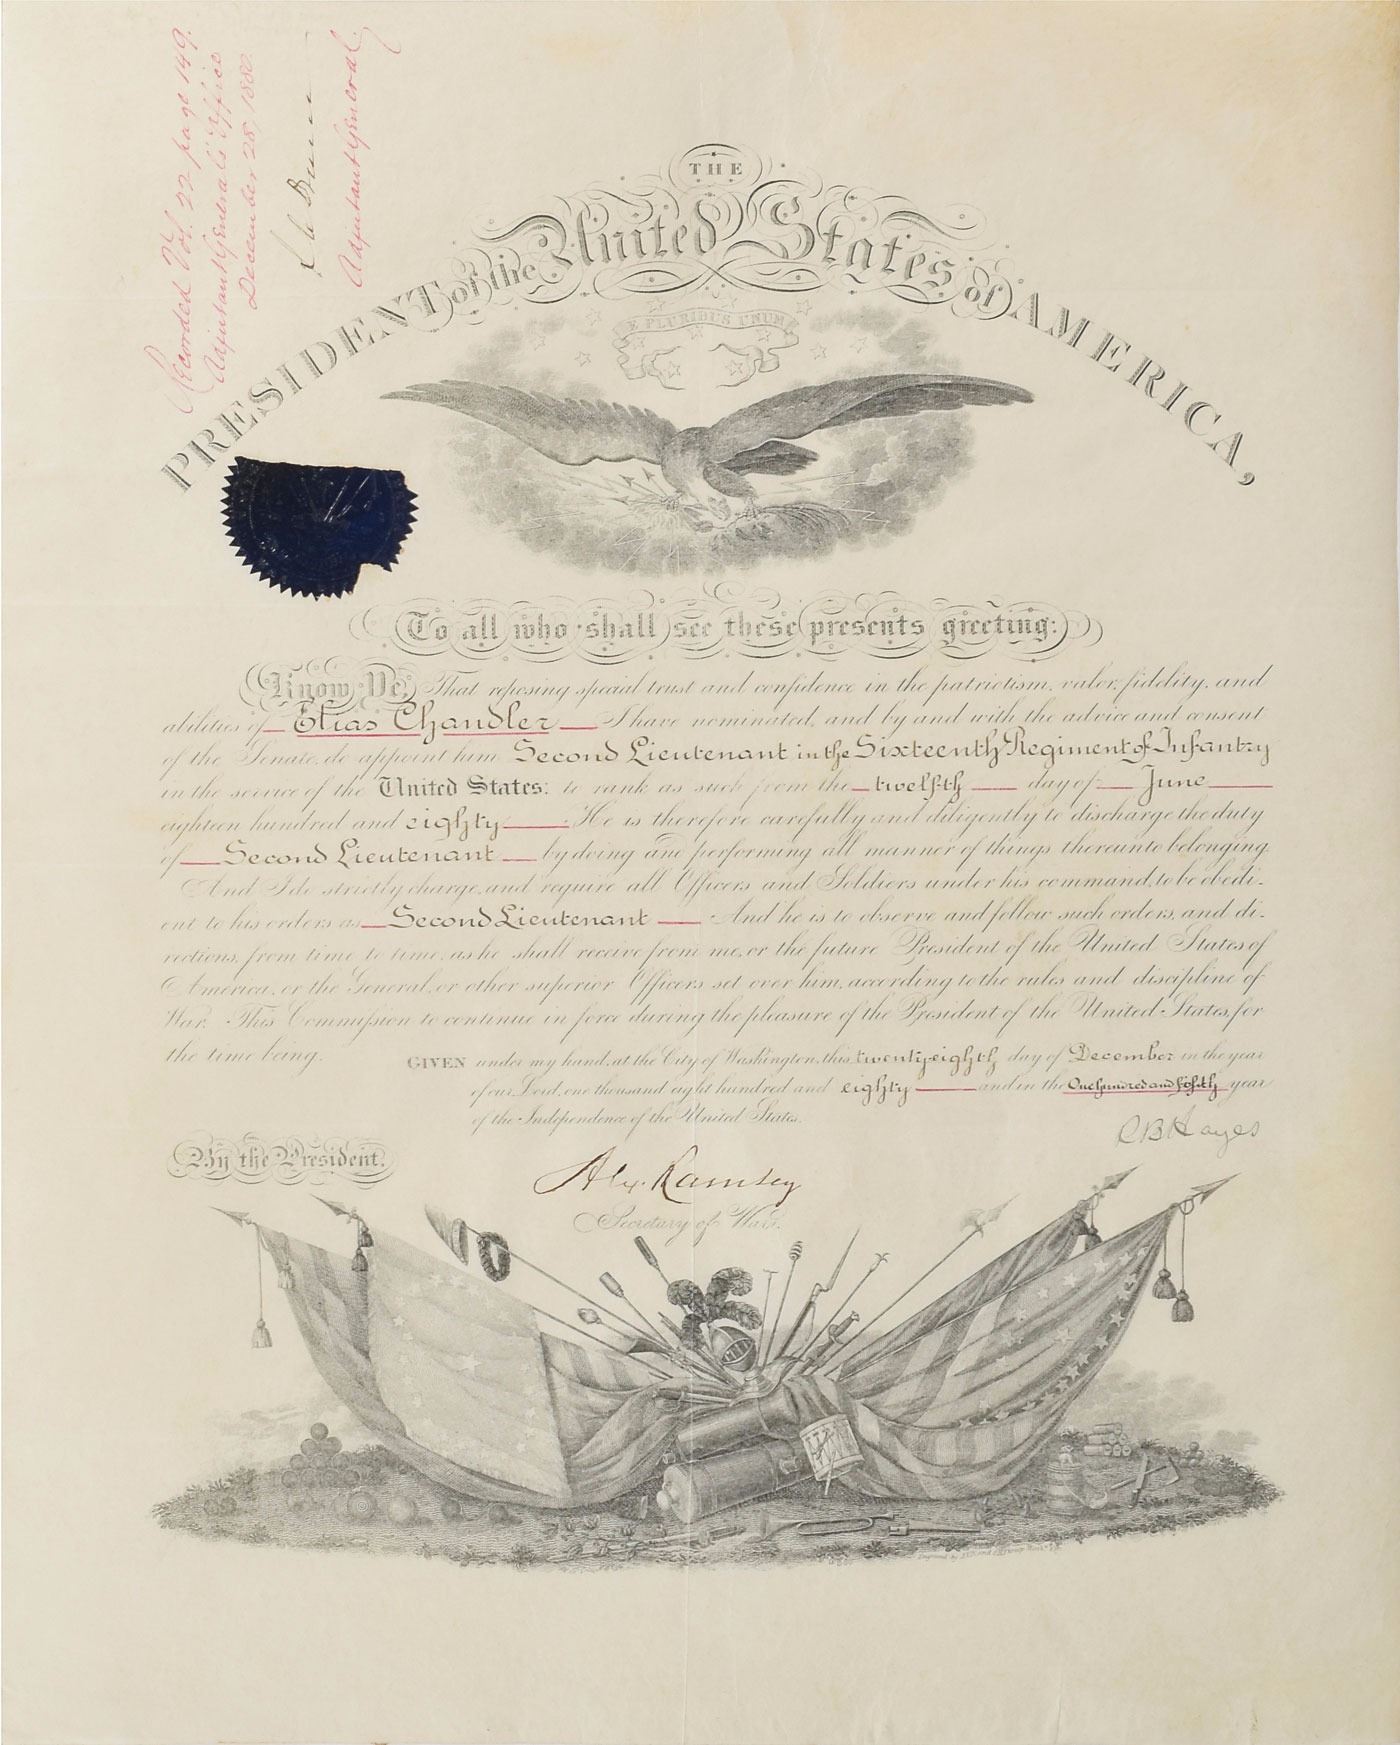 Recorded Vol. 22 page 149.
Adjutant General's Office
December 28, 1880.
Adjutant General.
THE
PRESIDENT of the United States of AMERICA,
E PLURIBUS UNUM
To all who shall see these presents greeting:
Know Ye, That reposing special trust and confidence in the patriotism, valor, fidelity, and
abilities of Elias Chandler I have nominated, and by and with the advice and consent
of the Senate, do appoint him Second Lieutenant in the Sixteenth Regiment of Infantry
in the service of the United States: to rank as such from the twelfth day of June
eighteen hundred and eighty. He is therefore carefully and diligently to discharge the duty
of Second Lieutenant by doing and performing all manner of things thereunto belonging.
And I do strictly charge, and require all Officers and Soldiers under his command, to be obedi-
ent to his orders as Second Lieutenant And he is to observe and follow such orders, and di-
rections, from time to time, as he shall receive from me, or the future President of the United States of
America, or the General, or other superior Officers set over him, according to the rules and discipline of
War. This Commission to continue in force during the pleasure of the President of the United States, for
the time being.
GIVEN under my hand, at the City of Washington, this twenty-eighth day of December in the year
of our Lord, one thousand eight hundred and eighty and in the One hundred and fifth year
of the Independence of the United States.
R B Hayes
By the President.
Alex. Ramsey
Secretary of War.